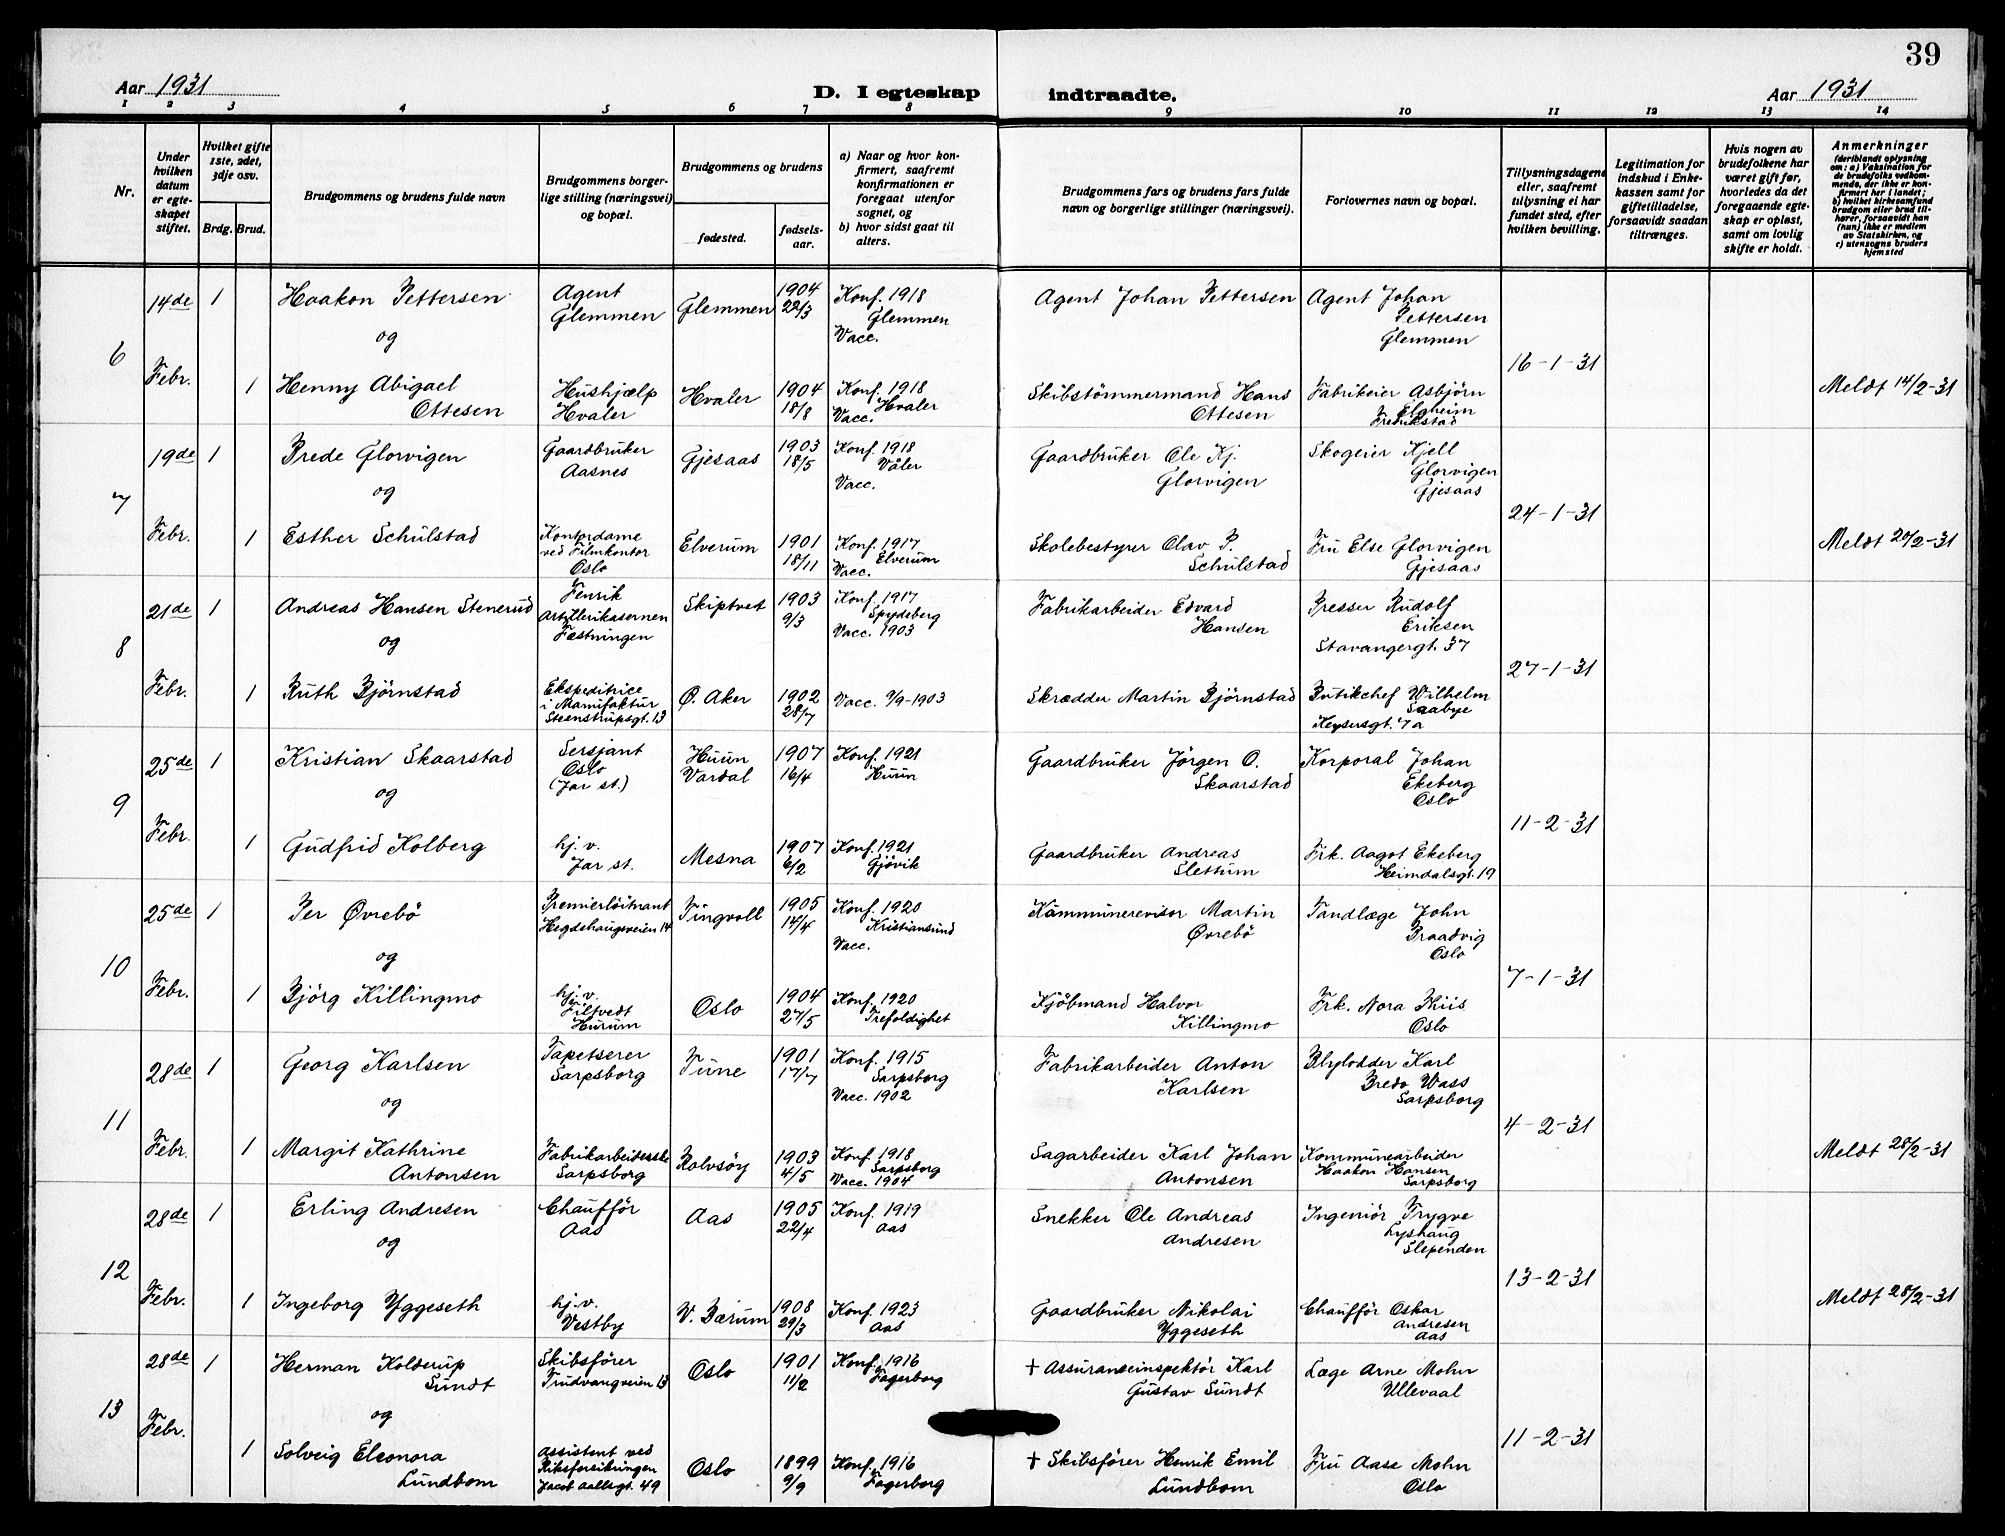 39
Aar 1931
D. I egteskap indtraadte.
Aar 1931
1 2 3 4 5 6 7 8 9 10 11 12 13 14
Nr.
Under hvilken datum er egteskapet stiftet.
Hvilket gifte 1ste, 2det, 3dje osv.
Brdg. Brud.
Brudgommens og brudens fulde navn
Brudgommens borgerlige stilling (næringsvei) og bopæl.
Brudgommens og brudens
fødested.
fødselsaar.
a) Naar og hvor konfirmert, saafremt konfirmationen er foregaat utenfor sognet, og
b) hvor sidst gaat til alters.
Brudgommens fars og brudens fars fulde navn og borgerlige stillinger (næringsvei).
Forlovernes navn og bopæl.
Tillysningsdagene eller, saafremt tillysning ei har fundet sted, efter hvilken bevilling.
Legitimation for indskud i Enkekassen samt for giftetilladelse, forsaavidt saadan tiltrænges.
Hvis nogen av brudefolkene har været gift før, hvorledes da det foregaaende egteskap er opløst, samt om lovlig skifte er holdt.
Anmerkninger
(deriblandt oplysning om: a) Vaksination for de brudefolks vedkommende, der ikke er konfirmert her i landet; b) hvilket kirkesamfund brudgom eller brud tilhører, forsaavidt han (hun) ikke er medlem av Statskirken, og c) utensogns bruders hjemsted
6 14de Febr.
1 Haakon Pettersen Agent Glemmen Glemmen 1904 22/3 Konf. 1918 Glemmen Vacc. Agent Johan Pettersen Agent Johan Pettersen Glemmen
og
16-1-31
1 Henny Abigael Ottesen Hushjælp Hvaler Hvaler 1904 18/8 Konf. 1918 Hvaler Vacc. Skibstömmermand Hans Ottesen Fabrikeier Asbjörn Elgheim Fredrikstad Meldt 14/2-31
7 19de Febr.
1 Prede Glorvigen Gaardbruker Aasnes Gjesaas 1903 18/5 Konf. 1918 Våler Vacc. Gaardbruker Ole Kj. Glorvigen Skogeier Kjell Glorvigen Gjesaas
og
24-1-31
1 Esther Schulstad Kontordame ved Filmkontor Oslo Elverum 1901 18/11 Konf. 1917 Elverum Vacc. Skolebestyrer Olav P. Schulstad Fru Else Glorvigen Gjesaas Meldt 20/2-31
8 21de Febr.
1 Andreas Hansen Stenerud Fenrik Artillerikasernen Fæstningen Skiptvet 1903 9/3 Konf. 1917 Spydeberg Vacc. 1903 Fabrikarbeider Edvard Hansen Presser Rudolf Eriksen Stavangergt. 37
og
27-1-31
1 Ruth Björnstad Ekspeditrice i Manufaktur Steenstrupsgt. 13 Ø. Aker 1902 28/7 Vacc. 9/9-1903 Skrædder Martin Björnstad Butikchef Wilhelm Saabye Keysersgt. 7a
9 25de Febr.
1 Kristian Skaarstad Sersjant Oslo (Jar st.) Huun Vardal 1907 16/4 Konf. 1921 Huun Gaardbruker Jörgen O. Skaarstad Korporal Johan Ekeberg Oslo
og
11-2-31
1 Gudfrid Kolberg hj. v. Jar st. Mesna 1907 6/2 Konf. 1921 Gjövik Gaardbruker Andreas Slettum Frk. Aagot Ekeberg Heimdalsgt. 19
10 25de Febr.
1 Per Øvrebö Premierlöitnant Hegdehaugsveien 14 Tingvoll 1905 14/4 Konf. 1920 Kristiansund Vacc. Kommunerevisor Martin Øvrebö Tandlæge John Braadvig Oslo
og
7-1-31
1 Björg Killingmo hj. v. Filtvedt Hurum Oslo 1904 27/5 Konf. 1920 Trefoldighet Kjöbmand Halvor Killingmo Frk. Nora Oslo
11 28de Febr.
1 Georg Karlsen Tapetserer Sarpsborg Tune 1901 17/7 Konf. 1915 Sarpsborg Vacc. 1902 Fabrikarbeider Anton Karlsen Blylodder Karl Bredo Wass Sarpsborg
og
4-2-31
1 Margit Kathrine Antonsen Fabrikarbeiderske Sarpsborg Rolvsöy 1903 4/5 Konf. 1918 Sarpsborg Vacc. 1904 Sagarbeider Karl Johan Antonsen Kommunearbeider Haakon Hansen Sarpsborg Meldt 28/2-31
12 28de Febr.
1 Erling Andresen Chaufför Aas Aas 1905 22/4 Konf. 1919 Aas Snekker Ole Andreas Andresen Ingeniör Trygve Lyshaug Slependen
og
13-2-31
1 Ingeborg Yggeseth hj. v. Vestby V. Bærum 1908 29/3 Konf. 1923 Aas Gaardbruker Nikolai Yggeseth Chaufför Oskar Andresen Aas Meldt 28/2-31
13 28de Febr.
1 Herman Kolderup Sundt Skibsförer Trudvangveien 13 Oslo 1901 11/2 Konf. 1916 Fagerborg + Assuranseinspektör Karl Gustav Sundt Læge Arne Mohn Ullevaal
og
11-2-31
1 Solveig Eleonora Lundbom Assistent ved Riksforsikringen Jacob Aallsgt. 49 Oslo 1899 9/9 Konf. 1916 Fagerborg + Skibsförer Henrik Emil Lundbom Fru Aase Mohn Oslo